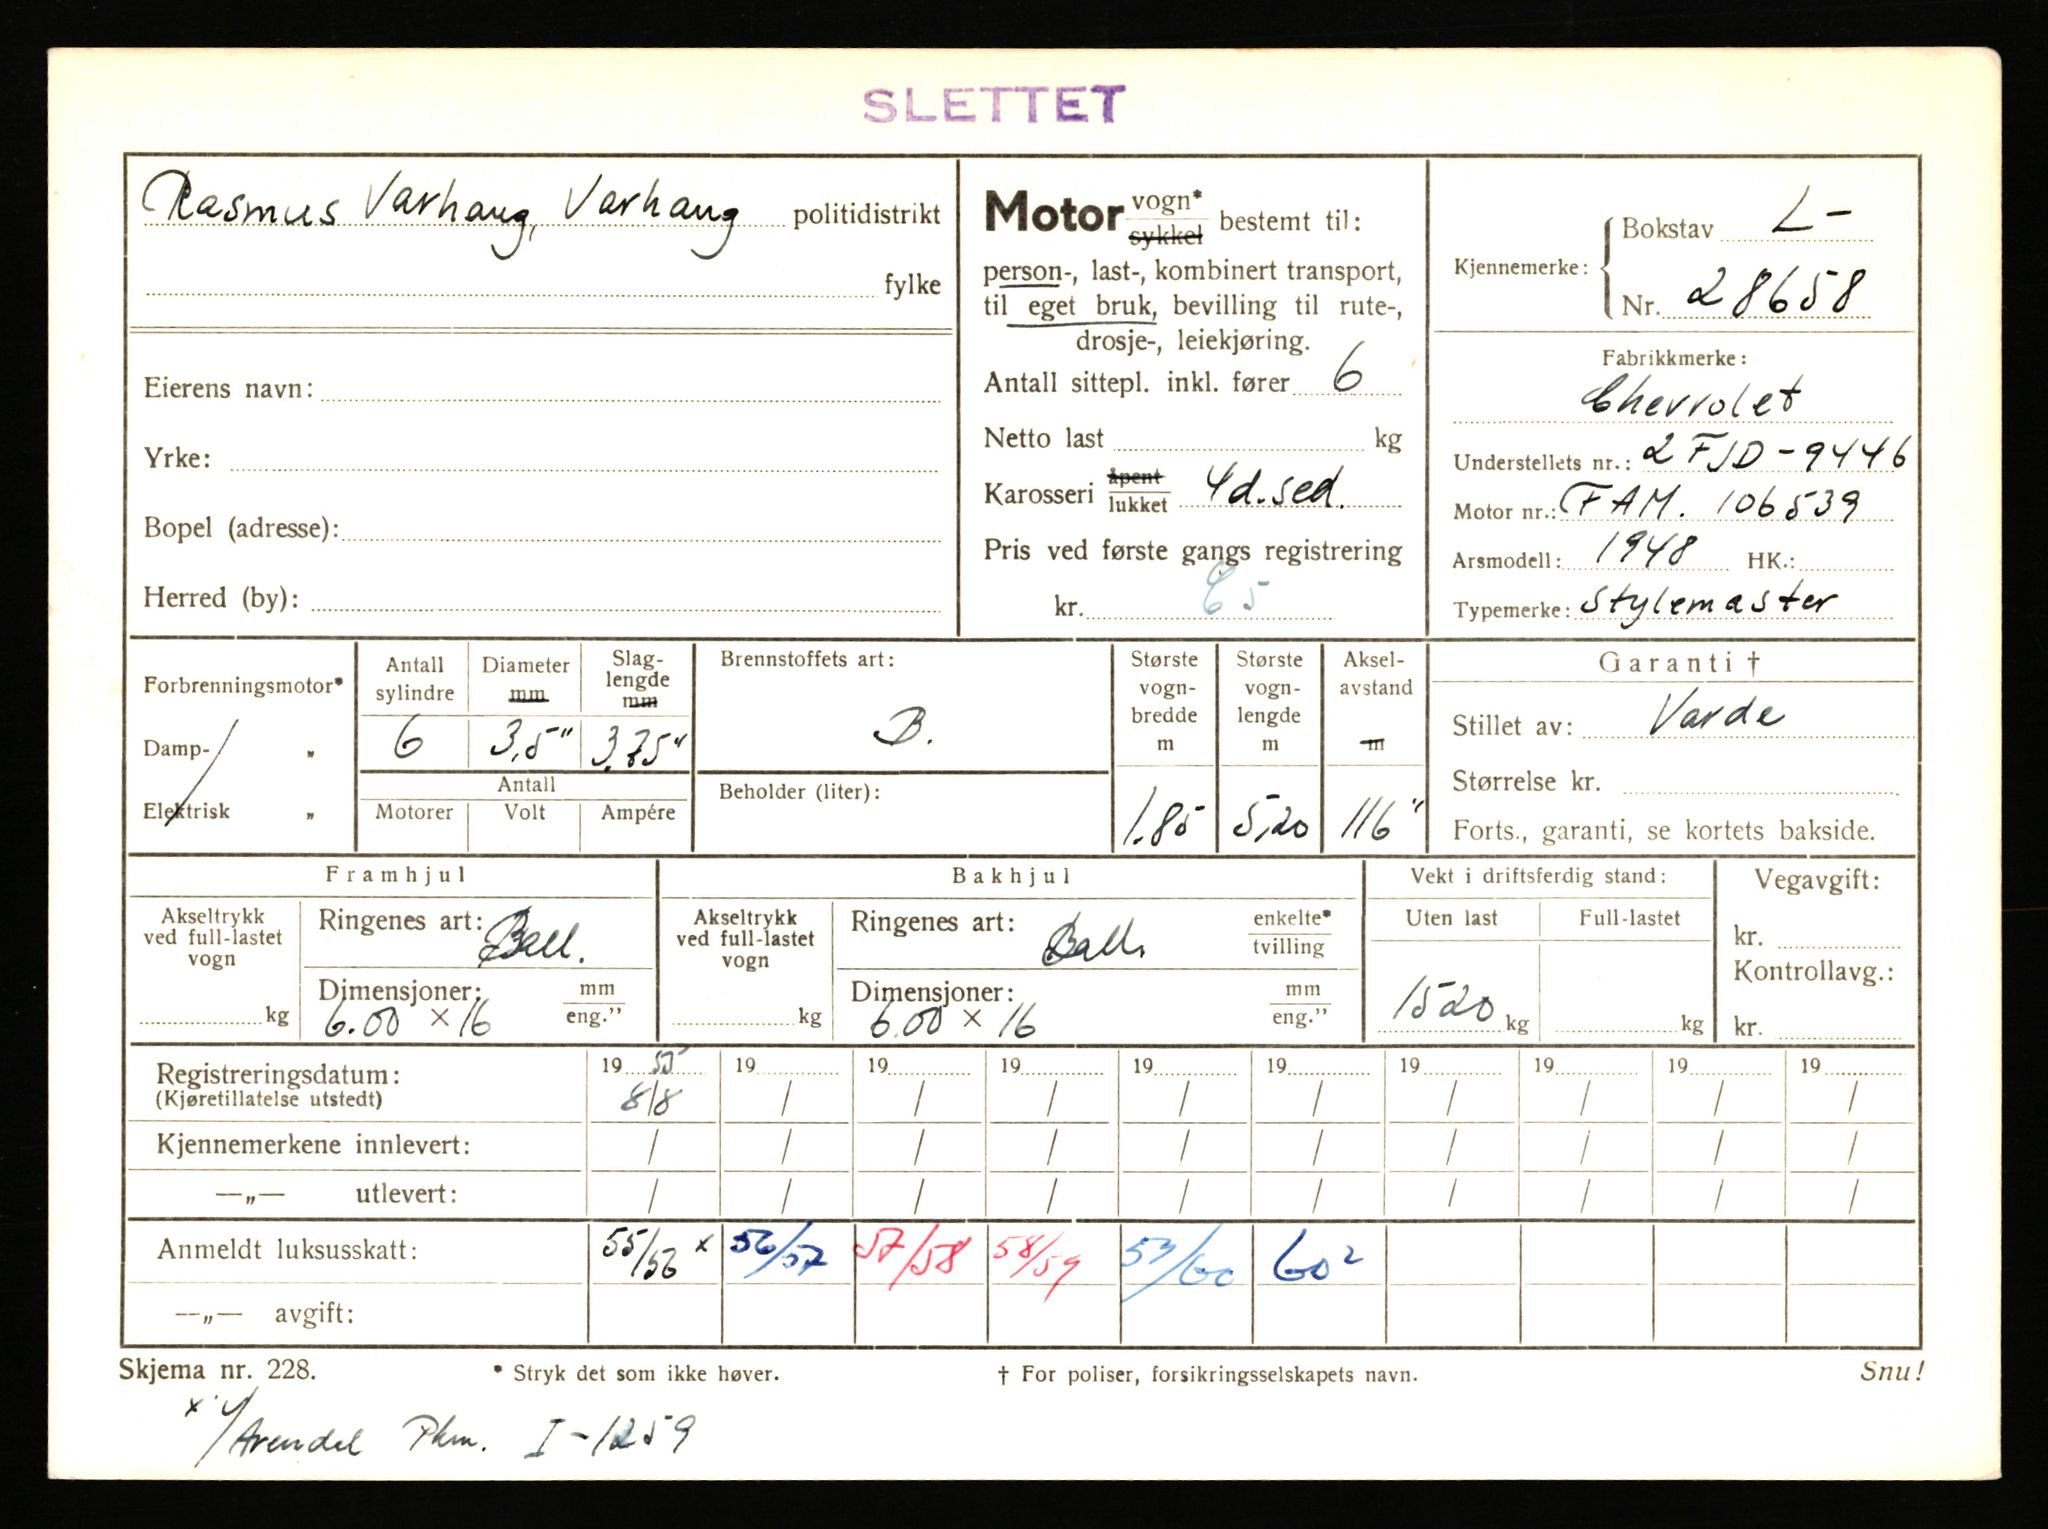 SLETTET
Rasmus Varhaug, Varhaug politidistrikt
fylke
Eierens navn:
Yrke:
Bopel (adresse):
Herred (by):
Motor vogn* sykkel bestemt til:
person-, last-, kombinert transport,
til eget bruk, bevilling til rute-,
drosje-, leiekjøring.
Antall sittepl. inkl. fører 6
Netto last kg
Karosseri åpent lukket 4d.sed.
Pris ved første gangs registrering
kr. E5
Kjennemerke: Bokstav L-
Nr. 28658
Fabrikkmerke:
Chevrolet
Understellets nr.: 2 FJD-9446
Motor nr.: FAM. 106539
Arsmodell: 1948 HK.:
Typemerke: Stylemaster
Forbrenningsmotor*
Damp- „
Elektrisk „
Antall sylindre 6
Diameter mm 3,5"
Slag-lengde mm 3,75"
Antall
Motorer Volt Ampére
Brennstoffets art:
B.
Beholder (liter):
Største vogn-bredde m 1.85
Største vogn-lengde m 5,20
Aksel-avstand m 116"
Garanti †
Stillet av: Varde
Størrelse kr.
Forts., garanti, se kortets bakside.
Framhjul
Akseltrykk ved full-lastet vogn
kg
Ringenes art: Ball.
Dimensjoner: mm eng."
6.00 × 16
Bakhjul
Akseltrykk ved full-lastet vogn
kg
Ringenes art: Ball. enkelte* tvilling
Dimensjoner: mm eng."
6.00 × 16
Vekt i driftsferdig stand:
Uten last Full-lastet
1520 kg kg
Vegavgift:
kr.
Kontrollavg.:
kr.
Registreringsdatum: 19 55 19 19 19 19 19 19 19 19 19
(Kjøretillatelse utstedt) 8/8 / / / / / / / / /
Kjennemerkene innlevert: / / / / / / / / / /
—„— utlevert: / / / / / / / / / /
Anmeldt luksusskatt: 55/56 x 56/57 57/58 58/59 59/60 60²
—„— avgift:
Skjema nr. 228. * Stryk det som ikke høver. † For poliser, forsikringsselskapets navn. Snu!
Arendel Pkm. I-1259